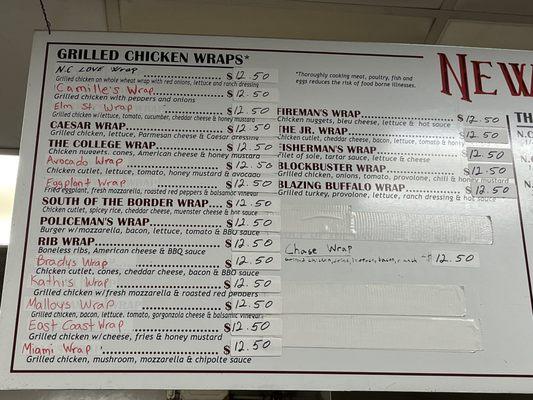 GRILLED CHICKEN WRAPS*
N.C LOVE Wrap $12.50
Grilled chicken on whole wheat wrap with red onions, lettuce and ranch dressing
Camille's Wrap $12.50
Grilled chicken with peppers and onions
Elm St. Wrap $12.50
Grilled chicken w/lettuce, tomato, cucumber, cheddar cheese & honey mustard
CAESAR WRAP $12.50
Grilled chicken, lettuce, Parmesan cheese & Caesar dressing
THE COLLEGE WRAP $12.50
Chicken nuggets, cones, American cheese & honey mustard
Avocado Wrap $12.50
Chicken cutlet, lettuce, tomato, honey mustard & avocado
Eggplant Wrap $12.50
Fried eggplant, fresh mozzarella, roasted red peppers & balsamic vinegar
SOUTH OF THE BORDER WRAP $12.50
Chicken cutlet, spicey rice, cheddar cheese, muenster cheese & hot sauce
POLICEMAN'S WRAP $12.50
Burger w/mozzarella, bacon, lettuce, tomato & BBQ sauce
RIB WRAP $12.50
Boneless ribs, American cheese & BBQ sauce
Bradys Wrap $12.50
Chicken cutlet, cones, cheddar cheese, bacon & BBQ sauce
Kathi's Wrap $12.50
Grilled chicken w/fresh mozzarella & roasted red peppers
Malloys Wrap $12.50
Grilled chicken, bacon, lettuce, tomato, gorganzola cheese & balsamic vinegar
East Coast Wrap $12.50
Grilled chicken w/cheese, fries & honey mustard
Miami Wrap $12.50
Grilled chicken, mushroom, mozzarella & chipolte sauce
*Thoroughly cooking meat, poultry, fish and
eggs reduces the risk of food borne illnesses.
FIREMAN'S WRAP $12.50
Chicken nuggets, bleu cheese, lettuce & hot sauce
THE JR. WRAP $12.50
Chicken cutlet, cheddar cheese, bacon, lettuce, tomato & honey
FISHERMAN'S WRAP $12.50
Filet of sole, tartar sauce, lettuce & cheese
BLOCKBUSTER WRAP $12.50
Grilled chicken, onions, tomato, provolone, chili & honey mustard
BLAZING BUFFALO WRAP $12.50
Grilled turkey, provolone, lettuce, ranch dressing & hot sauce
Chase Wrap
12.50
NEW
TH
N.C
N.